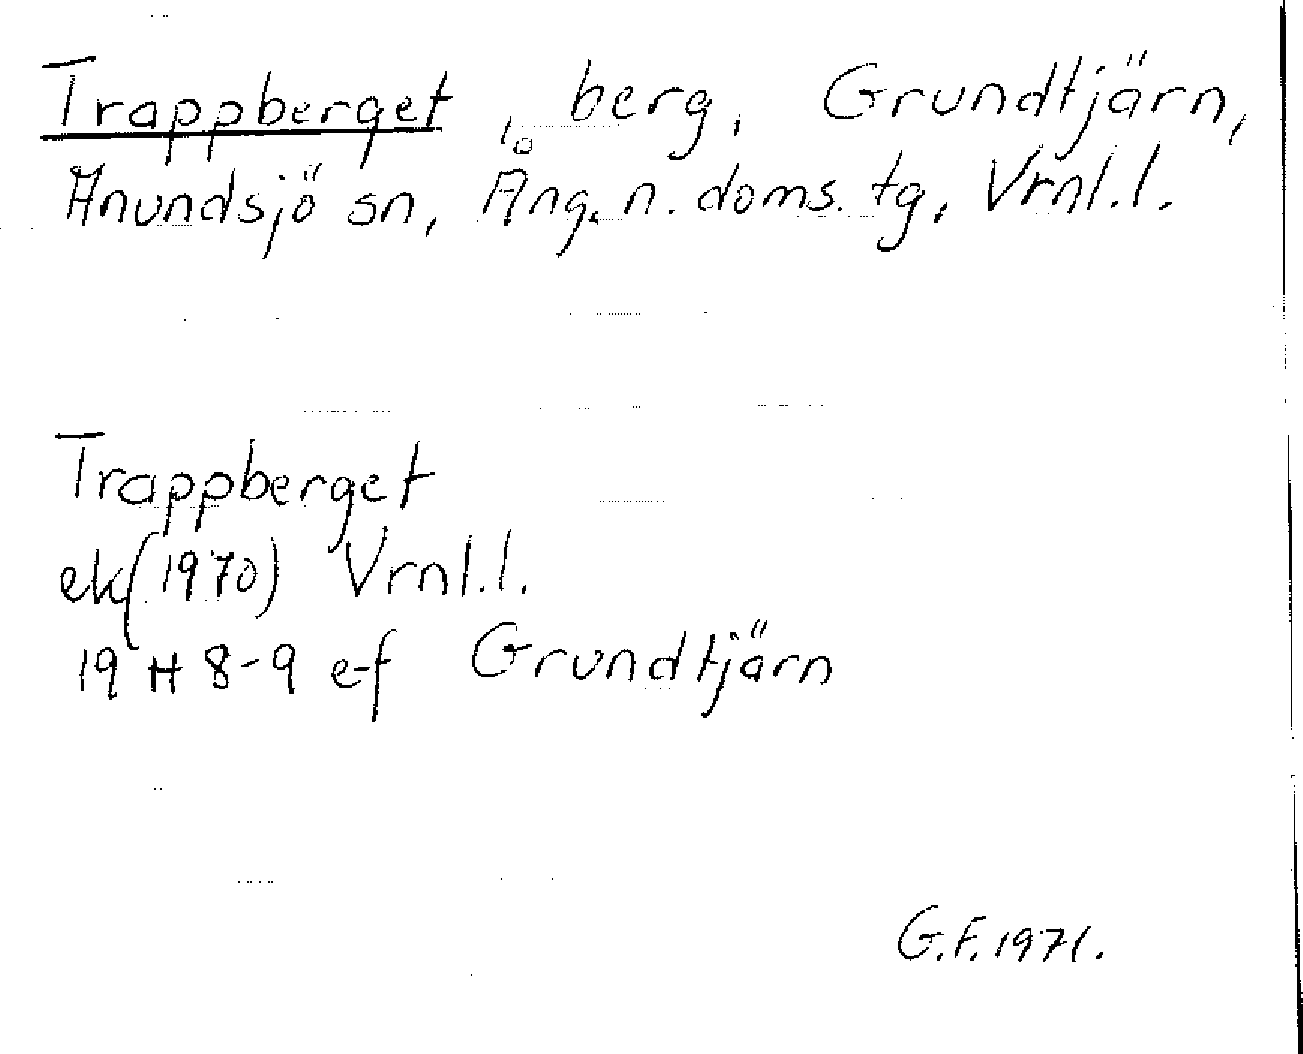 Trappberget, berg, Grundtjärn,
Anundsjö sn, Ång. n. doms. tg, Vrnl.l.
Trappberget
ek(1970) Vrnl.l.
19 H 8-9 e-f Grundtjärn
G.F. 1971.